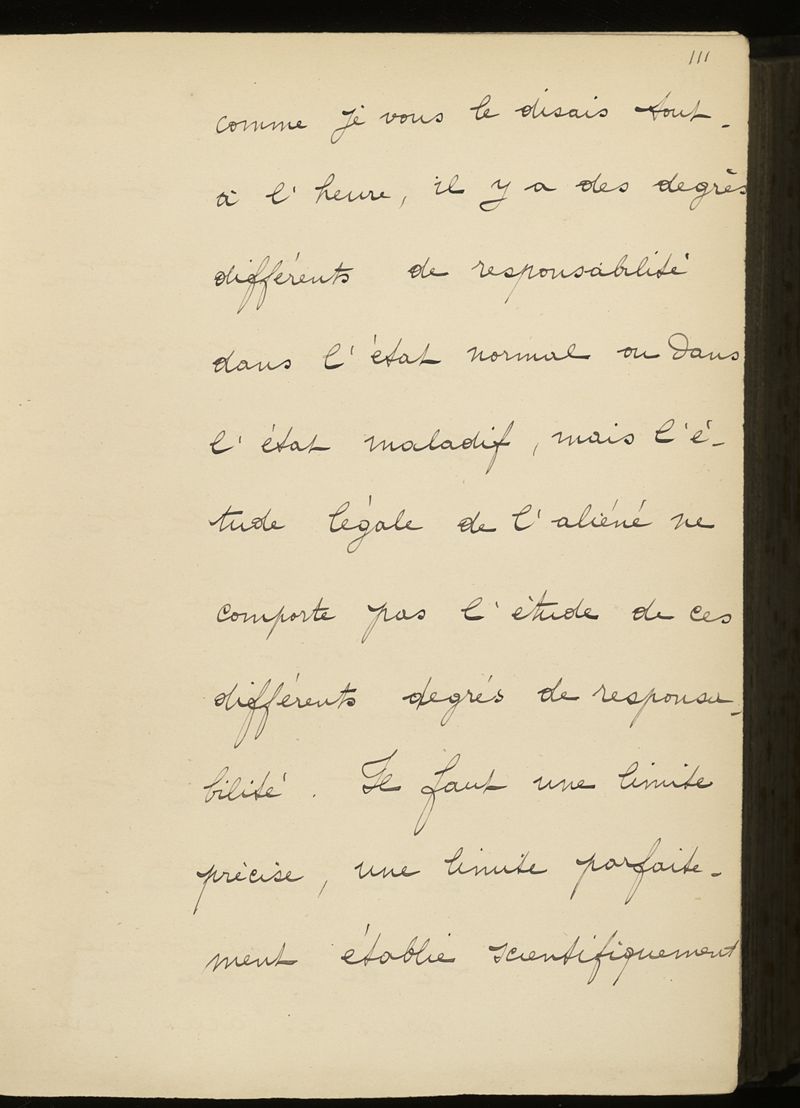 111
comme je vous le disais tout-
à l'heure, il y a des degrès
différents de responsabilité
dans l'état normal ou dans
l'état maladif, mais l'é-
tude légale de l'aliéné ne
comporte pas l'étude de ces
différents degrés de responsa-
bilité. Il faut une limite
précise, une limite parfaite-
ment établie scientifiquement